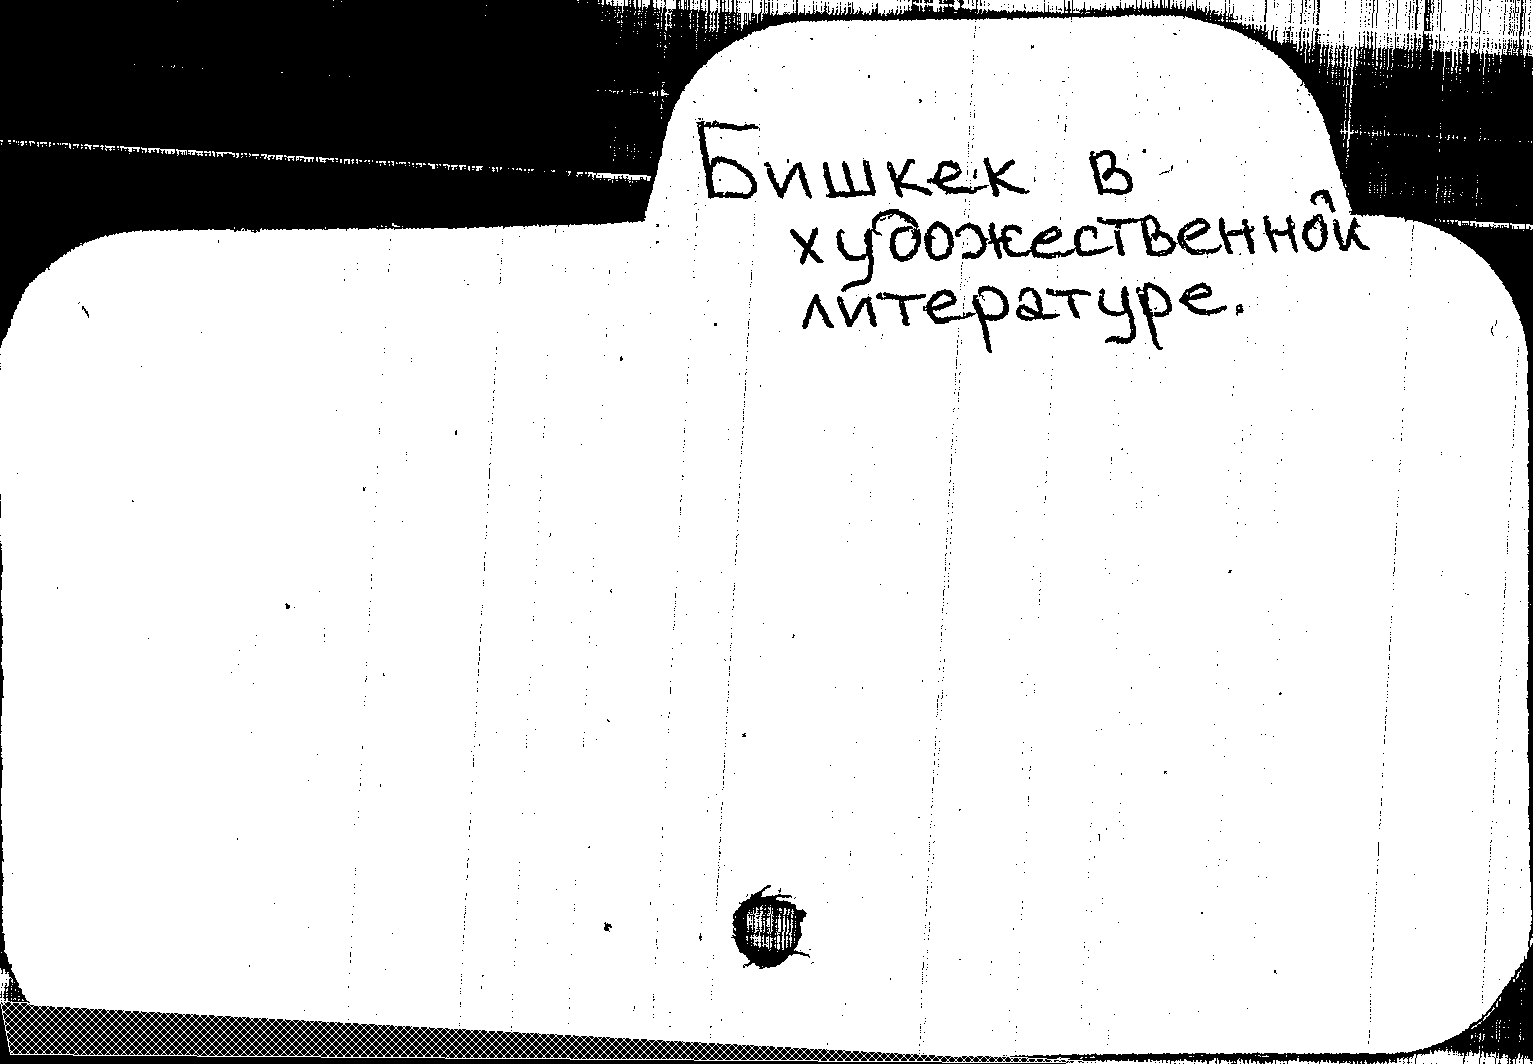 Бишкек в
художественной
литературе.